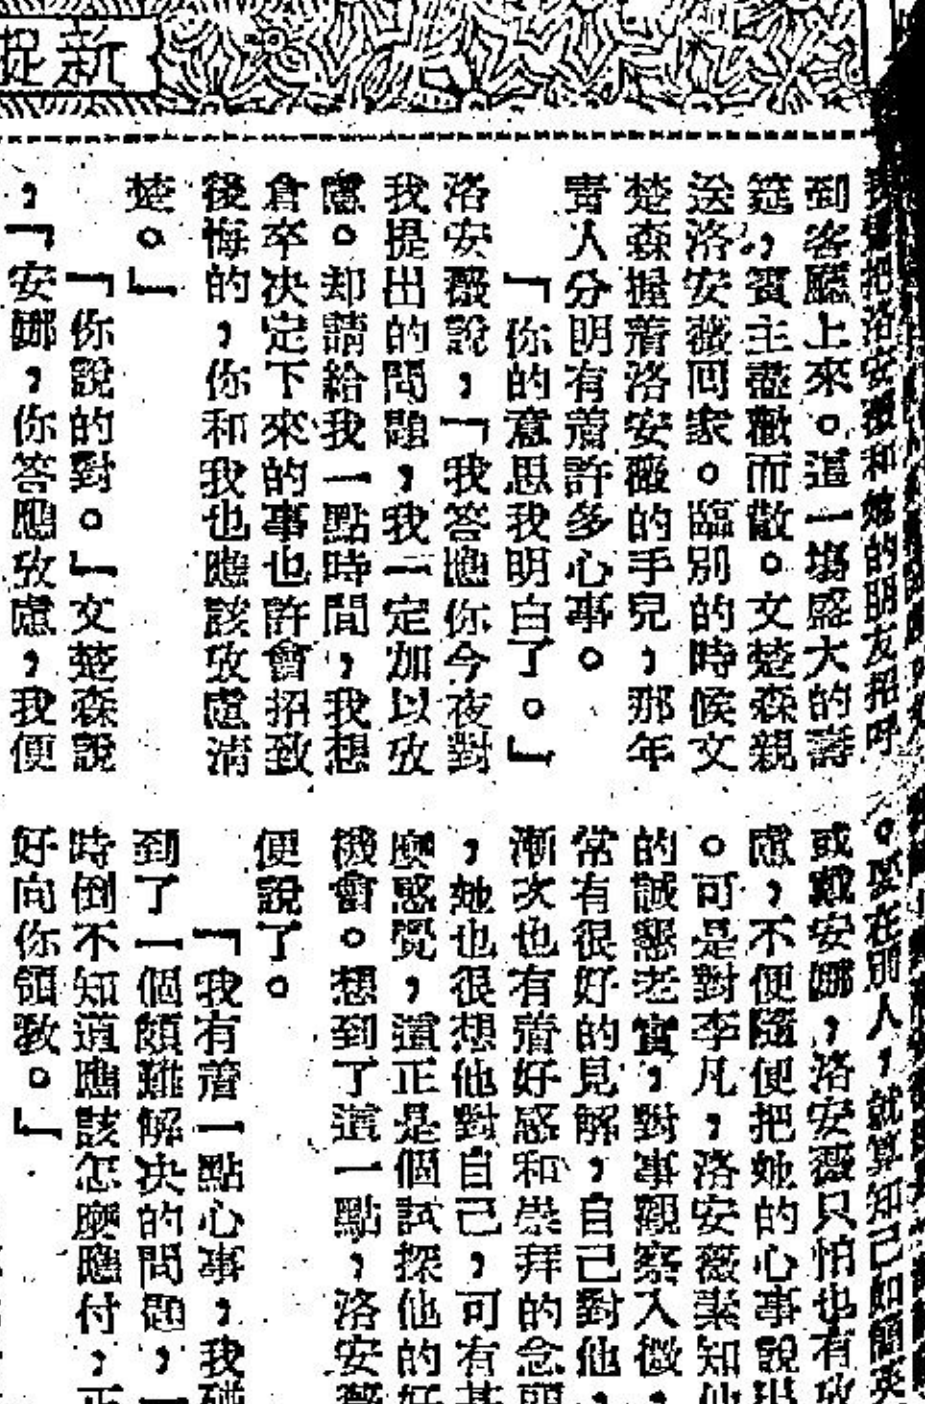 新
我便把洛安薇和她的朋友招呼
到客廳上來。這一塲盛大的壽
筵,賓主盡歡而散。文楚森親
送洛安薇回家。臨別的時候文
楚森握着洛安薇的手兒,那年
靑人分明有着許多心事。
「你的意思我明白了。」
洛安薇說,「我答應你今夜對
我提出的問題,我一定加以攷
慮。却請給我一點時間,我想
倉卒决定下來的事也許會招致
後悔的,你和我也應該攷慮清
楚。」
「你說的對。」文楚森說
,「安娜,你答應攷慮,我便
。要在別人,就算知己如簡英
或戴安娜,洛安薇只怕也有攷
慮,不便隨便把她的心事說出
。可是對李凡,洛安薇素知他
的誠懇老實,對事觀察入微,
常有很好的見解,自己對他,
漸次也有着好感和崇拜的念頭
,她也很想他對自己,可有甚
麽感覺,這正是個試探他的好
機會。想到了這一點,洛安薇
便說了。
「我有着一點心事,我碰
到了一個頗難解决的問題,一
時倒不知道應該怎麽應付,正
好向你領敎。」